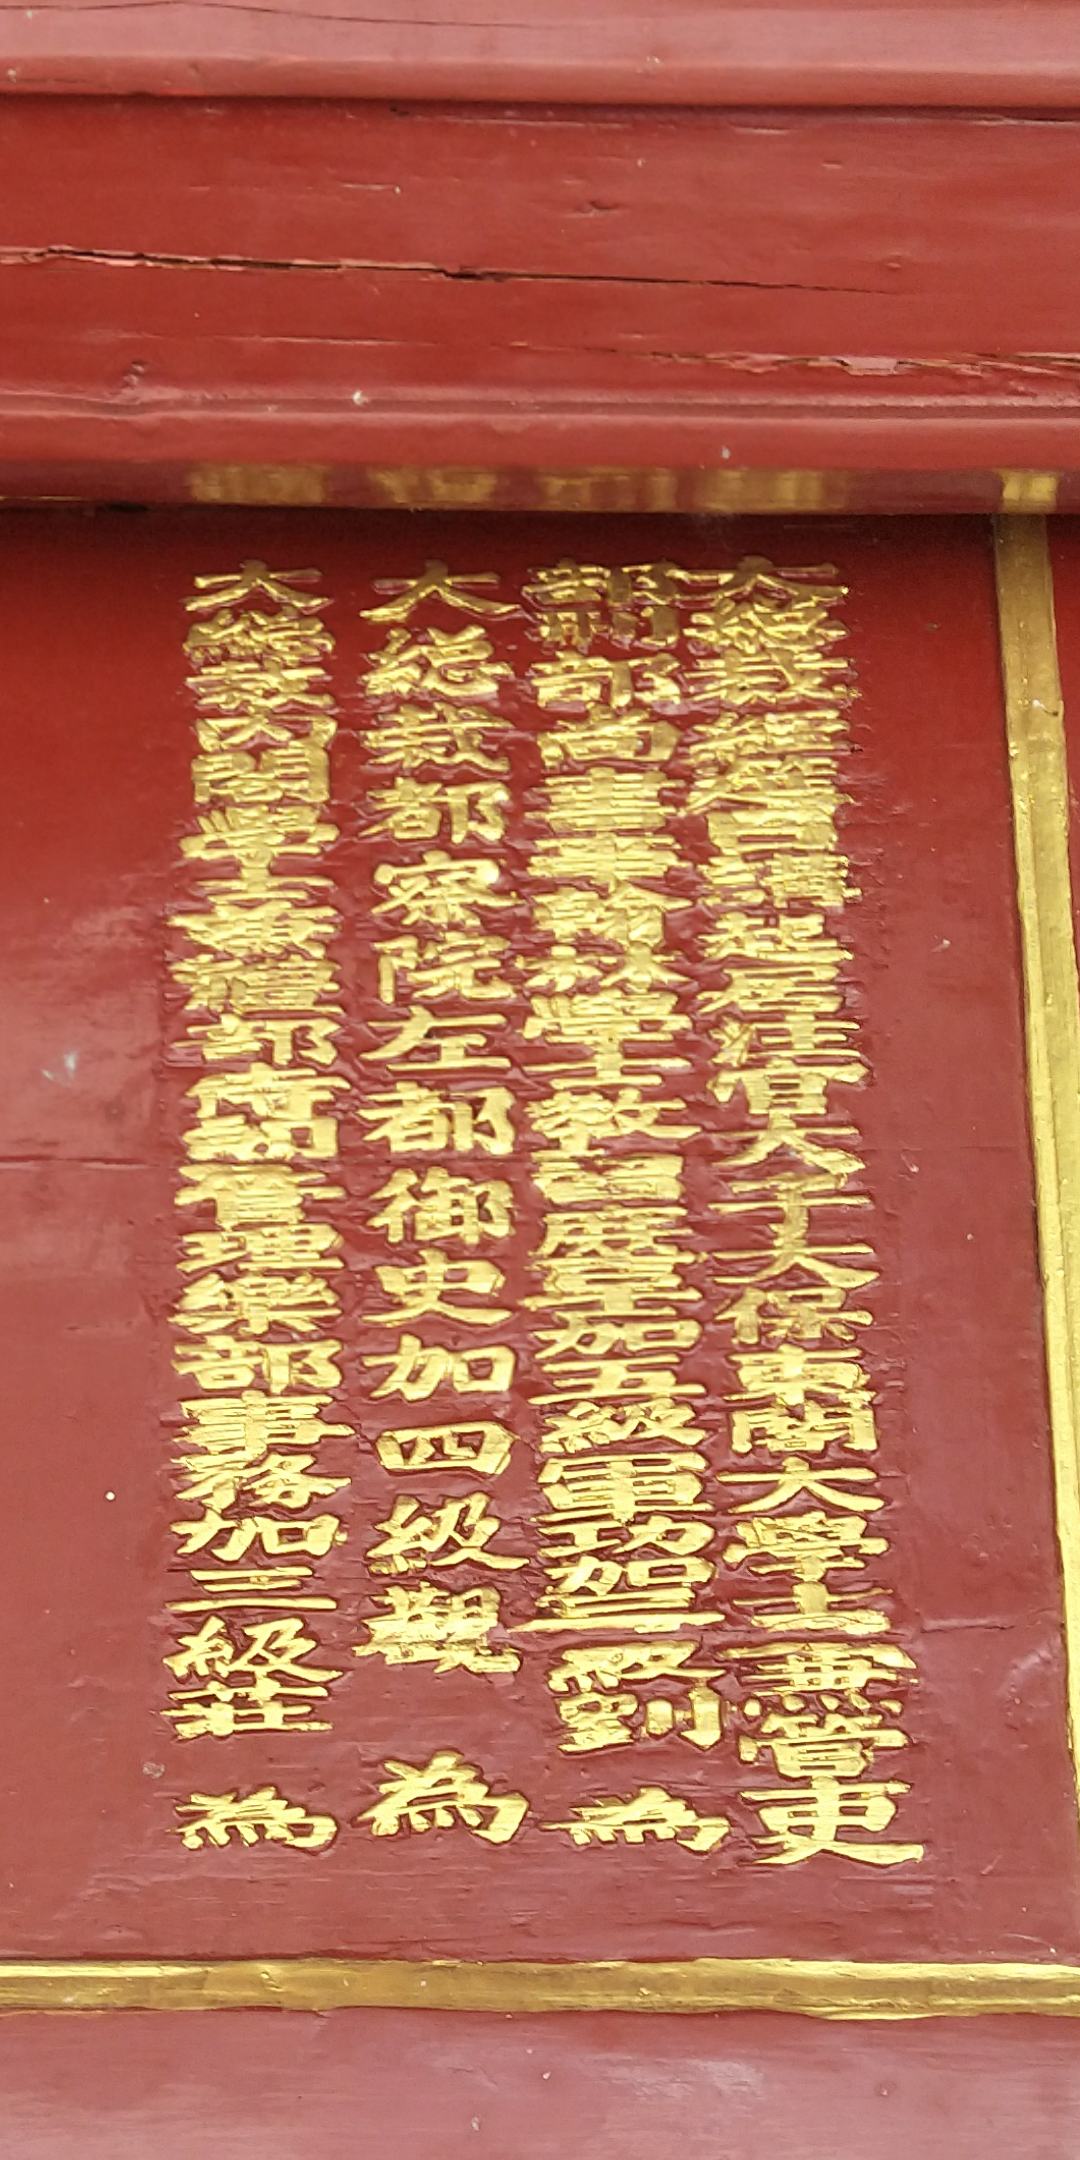 大總裁經筵日講起居注官太子太保東閣大學士兼管吏
部刑部尚書事翰林學士教習庶吉士加五級軍功加三級劉 為
大總裁都察院左都御史加四級觀 為
大總裁內閣學士兼禮部管理樂部事務加三級莊 為